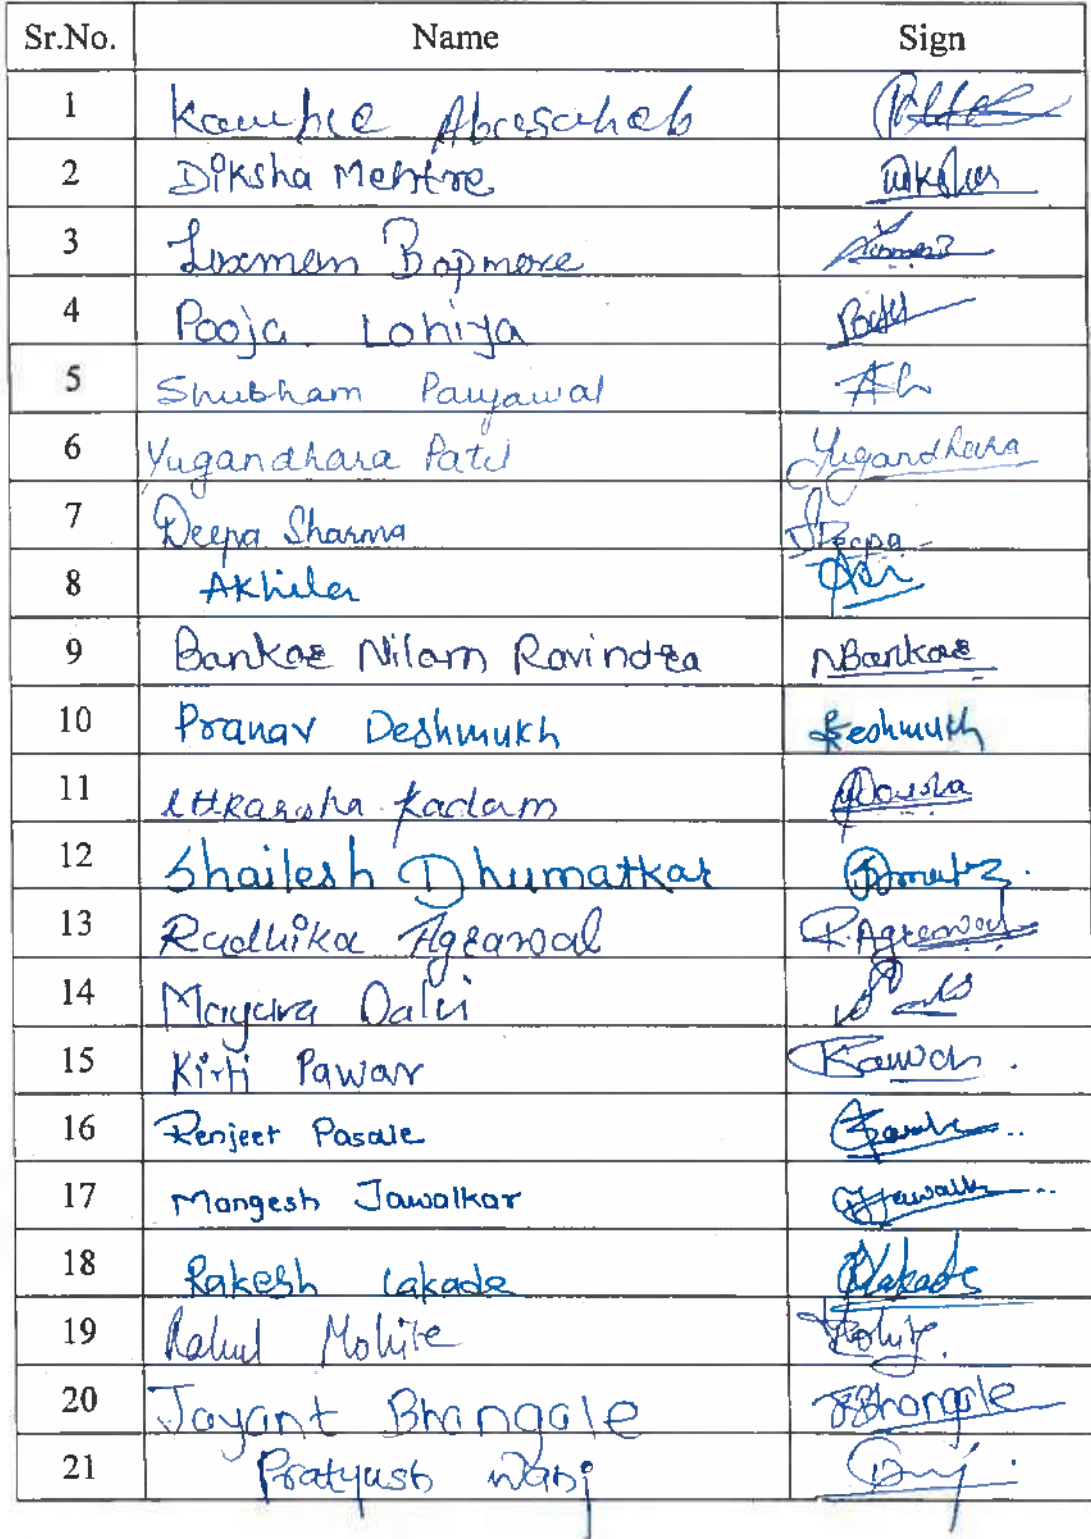 Sr.No. Name Sign
1 Kamble Abasaheb
2 Diksha Mehtre Diksha
3 Laxman Bopmore
4 Pooja Lohiya
5 Shubham
6 Yugandhara Patil Yugandhara
7 Deepa Sharma Deepa
8 Akhila
9 Bankar Nilam Ravindra NBankar
10 Pranav Deshmukh Deshmukh
11 Utkarsha Kadam
12 Shailesh Dhumatkar
13 Radhika Agrawal R.Agrawal
14 Mayura Dalvi
15 Kirti Pawar
16 Renjeet Pasale
17 Mangesh Jawalkar
18 Rakesh Lakade Lakade
19 Rahul Mohite Mohite
20 Jayant Bhangale JBhangale
21 Pratyush Wani